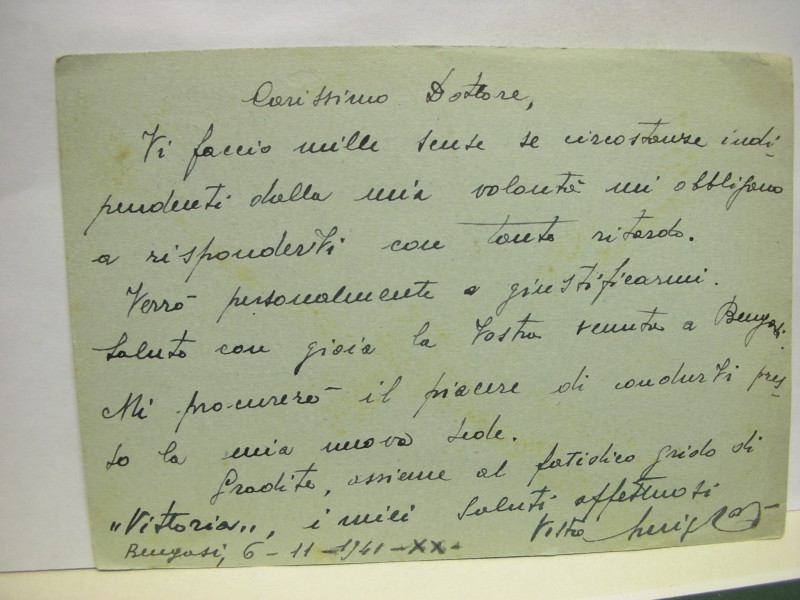 Carissimo Dottore,
Vi faccio mille scuse se circostanze indi-
pendenti dalla mia volontà mi obbligano
a rispondervi con tanto ritardo.
Verrò personalmente a giustificarmi.
Saluto con gioia la Vostra venuta a Bengasi.
Mi procurerò il piacere di condurvi pres-
so la mia nuova sede.
Gradite, assieme al fatidico grido di
"Vittoria", i miei saluti affettuosi
Vostro
Bengasi, 6-11-1941-XX-